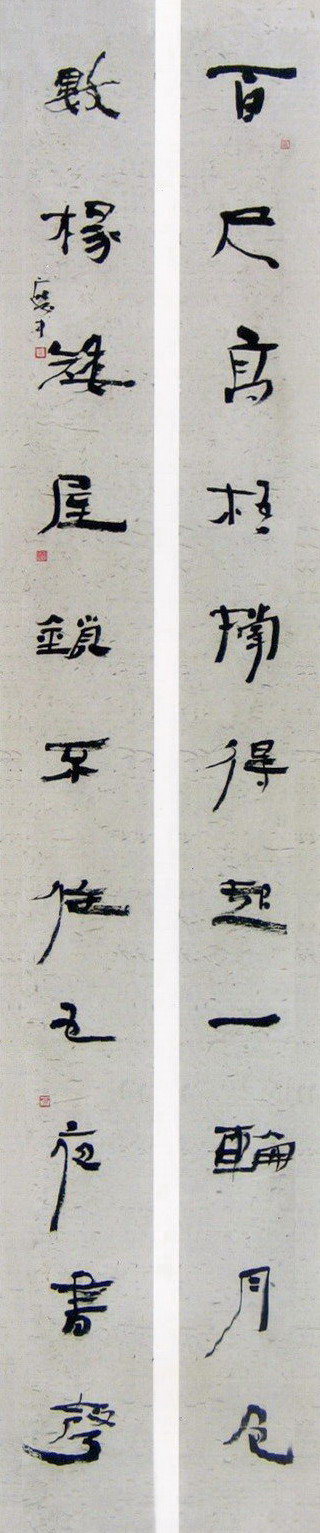 百尺高梧撐得起一輪月色
數椽矮屋鎖不住五夜書聲